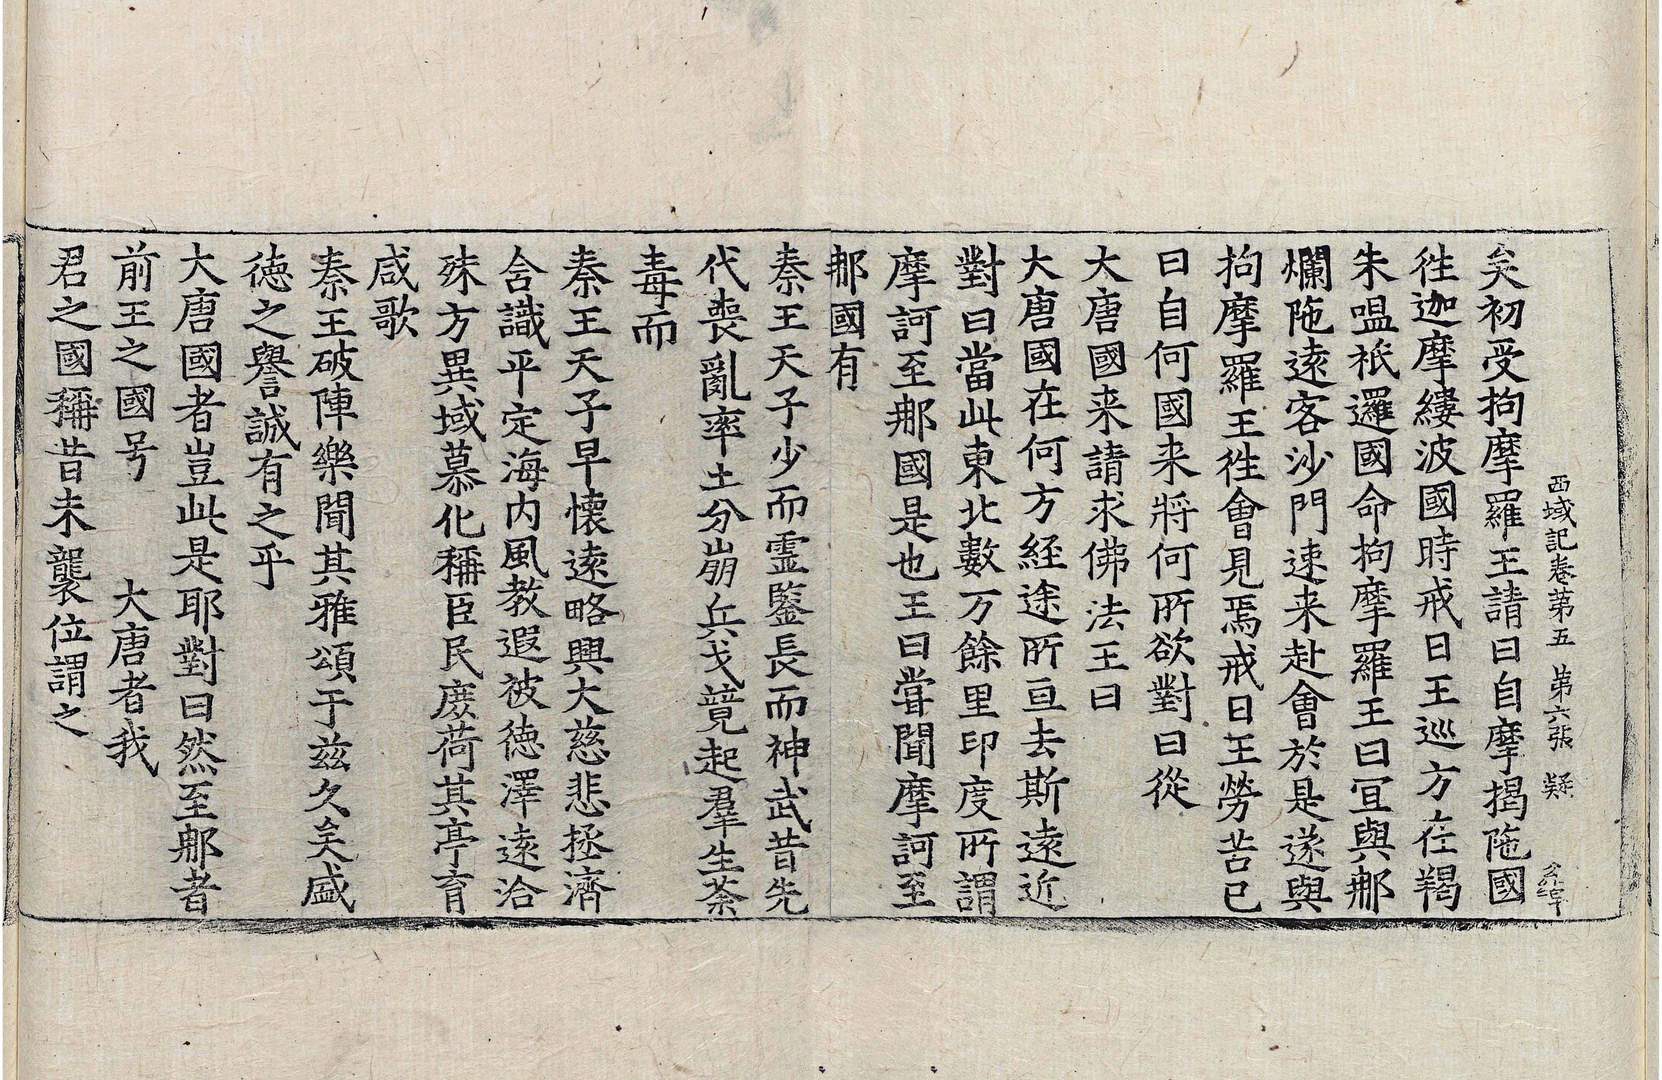 西域記卷第五 第六張 疑
矣初受拘摩羅王請曰自摩揭陁國
往迦摩縷波國時戒日王巡方在羯
朱嗢祇邏國命拘摩羅王曰冝與郍
爛陁逺客沙門速来赴會於是遂與
拘摩羅王往會見焉戒日王勞苦已
曰自何國来將何所欲對曰從
大唐國来請求佛法王曰
大唐國在何方経途所亘去斯逺近
對曰當此東北數万餘里印度所謂
摩訶至郍國是也王曰甞聞摩訶至
郍國有
秦王天子少而霊鑒長而神武昔先
代喪亂率土分崩兵戈競起羣生荼
毒而
秦王天子早懷逺略興大慈悲拯濟
含識平定海内風教遐被德澤逺洽
殊方異域慕化稱臣民庶荷其亭育
咸歌
秦王破陣樂聞其雅頌于茲久矣盛
徳之譽誠有之乎
大唐國者豈此是耶對曰然至郍者
前王之國号 大唐者我
君之國稱昔未襲位謂之